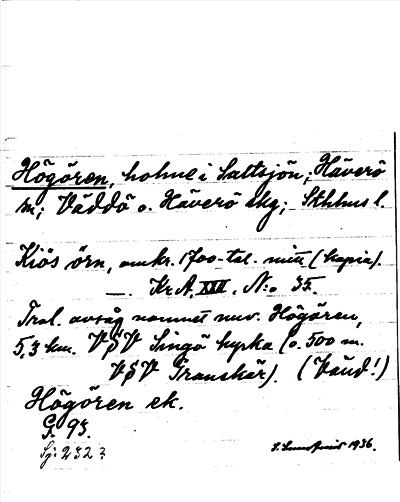 Högören, holme i Saltsjön; Häverö
sn; Väddö o. Häverö skg; Sthlms l.
Kiös örn, omkr. 1700-tal. mitt (kopia).
Kr.A. XXV. N:o 35.
Trol. avsåg namnet nuv. Högören,
5,3 km. VSV Singö kyrka (o. 500 m.
VSV Granskär). (Vänd!)
Högören ek.
G. 93.
Sj: 232 ?
1936.